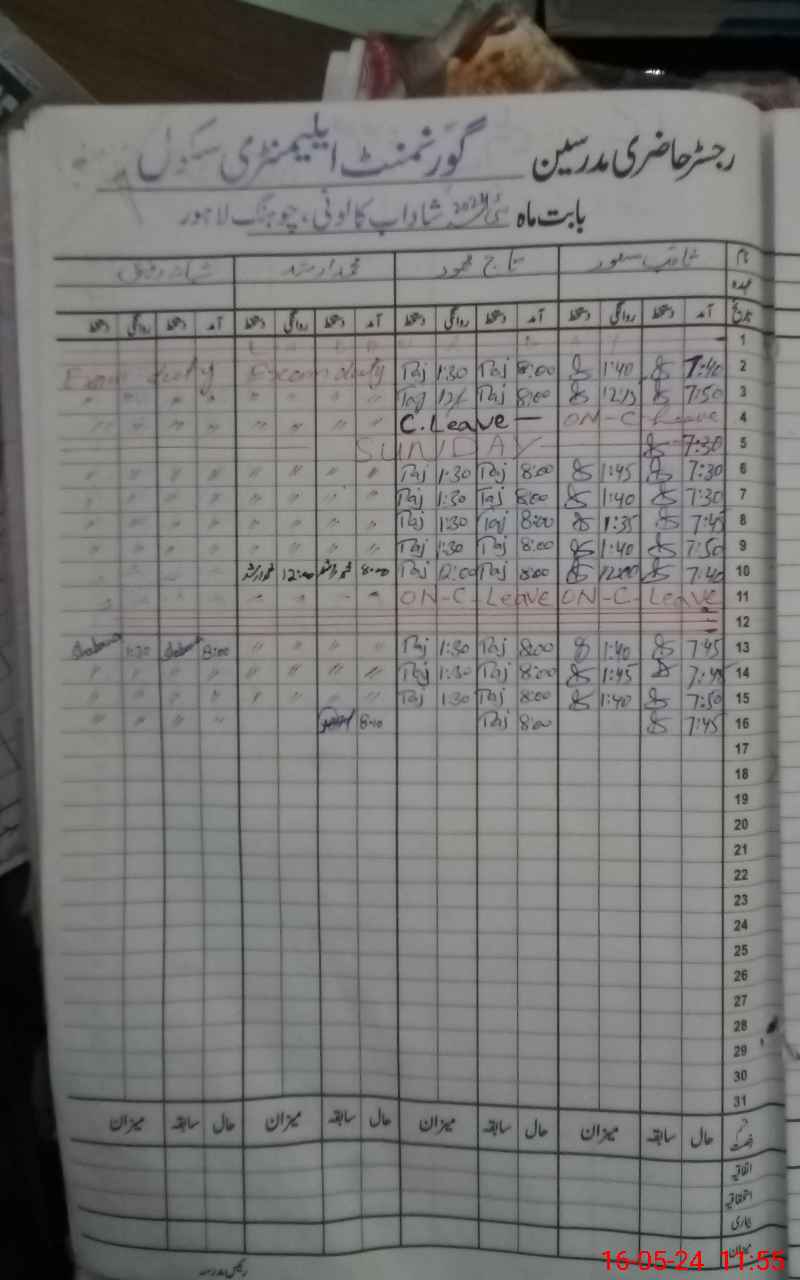 رجسٹر حاضری مدرسین گورنمنٹ ایلیمنٹری سکول
بابت ماہ مئی 2024 شاداب کالونی، چوہنگ لاہور
نام ثاقب سعود تاج محمود محمد ارشد
عہدہ
تاریخ آمد دستخط روانگی دستخط آمد دستخط روانگی دستخط آمد دستخط روانگی دستخط آمد دستخط روانگی دستخط
1
2 7:40 1:40 8:00 Taj 1:30 Taj Exam duty Exam duty
3 7:50 12/5 8:00 Taj Taj " " " " " " " "
4 ON-C-Leave C.Leave — " " " " " " " "
5 7:30 SUNDAY
6 7:30 1:45 8:00 Taj 1:30 Taj " " " " " " " "
7 7:30 1:40 8:00 Taj 1:30 Taj " " " " " " " "
8 7:45 1:35 8:00 Taj 1:30 Taj " " " " " " " "
9 7:50 1:40 8:00 Taj 1:30 Taj " " " " " " " "
10 7:40 12:00 8:00 Taj 12:00 Taj 8:00 محمد ارشد 12:00 محمد ارشد
11 ON-C-Leave ON-C-Leave
12
13 7:45 1:40 8:00 Taj 1:30 Taj " " " " 8:00 Shabana 1:30 Shabana
14 7:45 1:45 8:00 Taj 1:30 Taj " " " " " " " "
15 7:50 1:40 8:00 Taj 1:30 Taj " " " " " " " "
16 7:45 8:00 Taj 8:00 " " " "
17
18
19
20
21
22
23
24
25
26
27
28
29
30
31
قسم رخصت حال سابقہ میزان حال سابقہ میزان حال سابقہ میزان حال سابقہ میزان
اتفاقیہ
استحقاقیہ
بیماری
میزان
رئیس مدرسہ
16-05-24 11:55